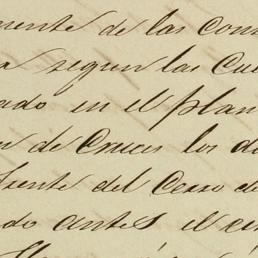 mente de las con
a segun las Cu
ado en el plan
n de Cruces los d
frente del Cerro de
do antes el